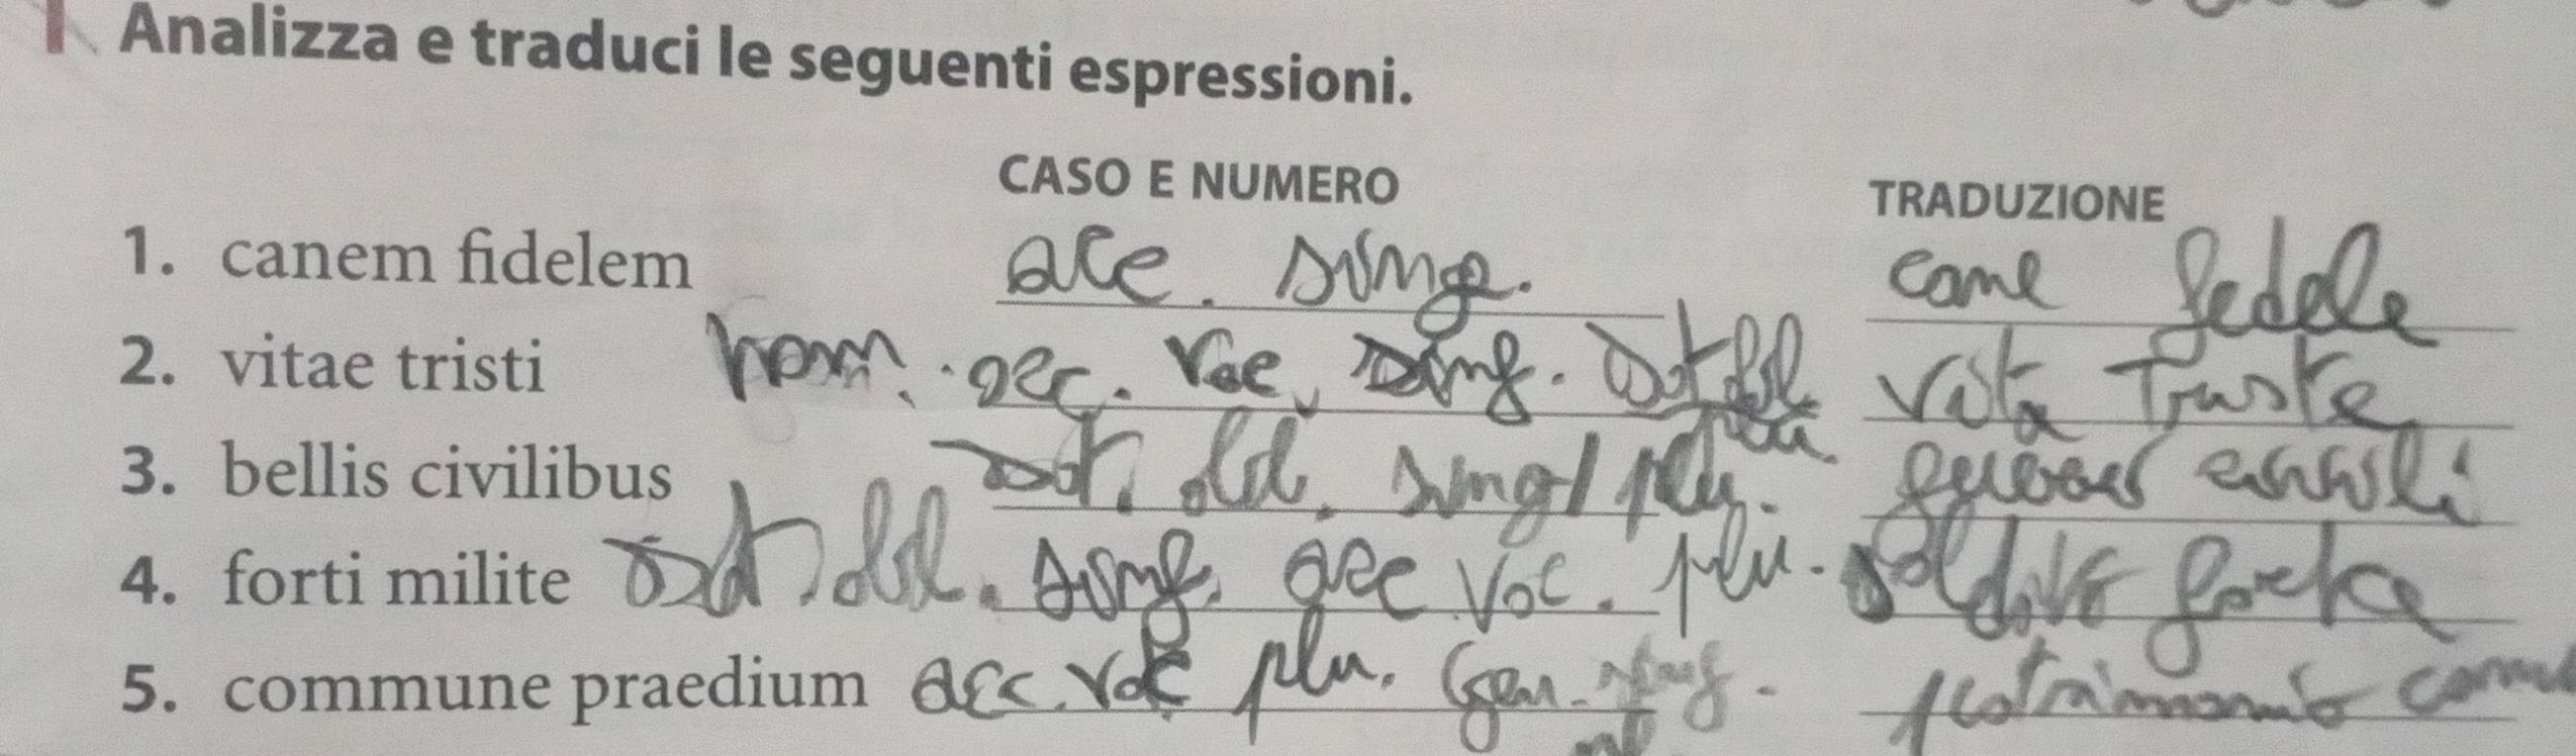 Analizza e traduci le seguenti espressioni.
CASO E NUMERO TRADUZIONE
1. canem fidelem acc. sing. cane fedele
2. vitae tristi nom. acc. voc. sing. dat abl plu. vita triste
3. bellis civilibus dat. abl. sing/plu. guerre civili
4. forti milite dat. abl. sing. acc voc. plu. soldato forte
5. commune praedium acc. voc plu. Gen. sing. patrimonio